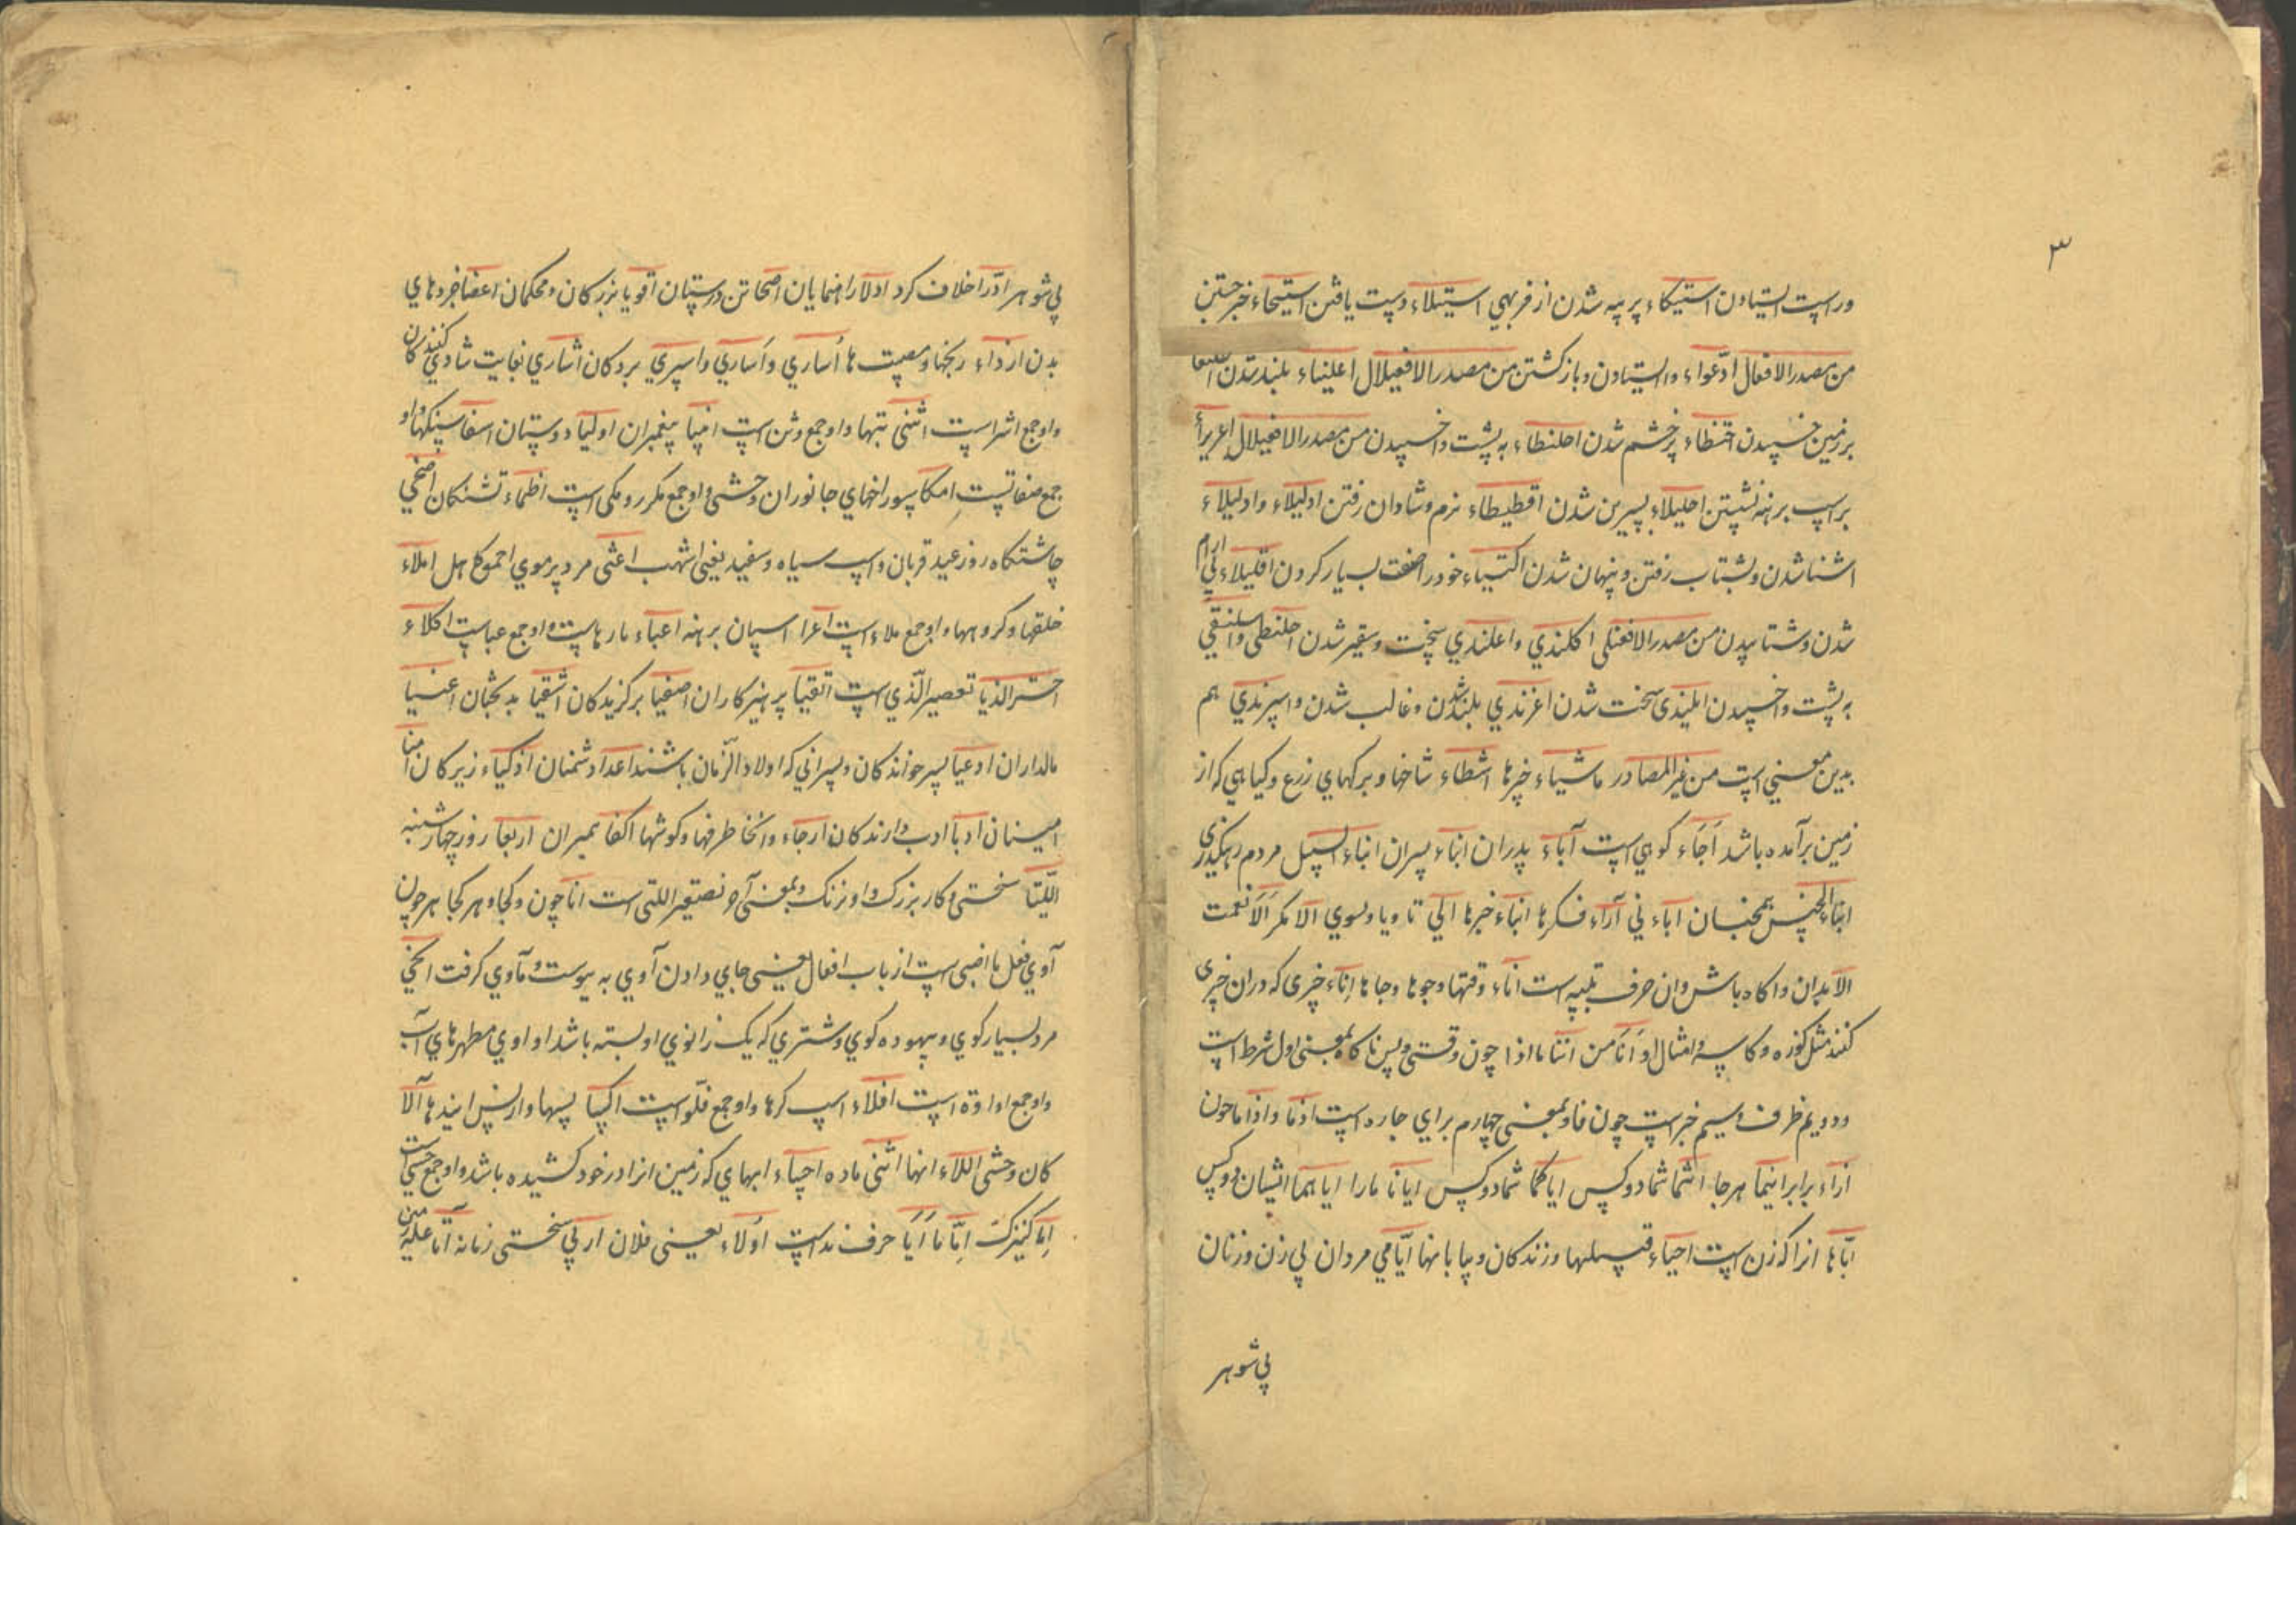 ۳
وراست ایستادن استیکاء پر پیه شدن از فربهی استیلاء دست یافتن استیحاء خبر جستن
من مصدر الافعال ادعواء وا ایستادن و باز کشتن من مصدر الافعیلال اعلیناء بلند شدن
بر زمین خسپیدن احتنطاء پر خشم شدن احلنطاء به پشت وا خسپیدن من مصدر الافعیلال اعریراء
بر اسپ برهنه نشستن احلیلاء شیرین شدن اقطیطاء نرم و شادان رفتن ادلیلاء وادلیلاء
اشنا شدن و بشتاب رفتن و پنهان شدن اکتیاء خود را صفت بسیار کردن اقلیلاء بی ارام
شدن و شتابیدن من مصدر الافعنلی اکلندي واعلندي سخت و سقیر شدن احلنطی واسلنقی
به پشت وا خسپیدن ابلیندی سخت شدن اغرندي بلند شدن و غالب شدن واسرندي هم
بدین معنی است من غیر المصادر ما شیاء چیزها اشطاء شاخها و برکهای زرع و کیاهی که از
زمین برآمده باشد اَجَاء کوهی است آباء پدران ابناء پسران ابناء السبیل مردم رهکذری
ابناء الجنس همجنسان اباء نی آراء فکرها انباء خبرها الی تا و یا و بسوی الا مکر اَلَا نعمت
الا بدان و اکاه باش و ان حرف تنبیه است اناء وقتها و جوها و جاها اِناء چیزی که دران چیزی
کنند مثل کوزه و کاسه و امثال او اَنَا من انتنا ما اذا چون وقتی و پس ناکاه بمعنی اول شرط است
و دویم ظرف و سیم خبر است چون فا و بمعنی چهارم برای جاره است اذما واذا ما چون
ازاء برابر اینما هر جا انتما شما دو کس ایاکما شما دو کس ایانا ما را ایاهما ایشان دو کس
ایاها انرا که زن است احیاء قبیلها و زندکان و بیابانها ایامی مردان بی زن و زنان
بی شوهر
بی شوهر ادرا خلاف کرد ادلا راهنمایان اصحا تن درستان اقویا بزرکان و محکمان اعضا جزوهای
بدن ارزاء رنجها و مصیبت ها اُساري واَساري واسري بردکان اشاري بغایت شادی کنندکان
و او جمع اشر است اثنی بتها و او جمع وثن است انبیا پیغمبران اولیا دوستان اصفا سنکها و او
جمع صفاتست امکا سوراخهای جانوران وحشی و او جمع مکر و مکی است اظماء تشنکان اضحی
چاشتکاه روز عید قربان و اسپ سیاه و سفید یعنی اشهب اعثی مرد پر موی احموکل اهل املاء
خلقها و کروهها و او جمع ملاء است اعرا اسپان برهنه اعباء بارهاست و او جمع عب است اکلاء
اخـر الذیا تصغیر الّذي است اتقیا پرهیزکاران اصفیا برکزیدکان اشقیا بدبختان اغنیا
مالداران ادعیا پسر خواندکان و پسرانی که اولاد الزمان باشند اعدا دشمنان اذکیاء زیرکان امنا
امینان ادبا ادب دارندکان ارجاء وانحا طرفها و کوشها اکفا همسران اربعا روز چهارشنبه
اللّتیا سختی و کار بزرک و او رنک و بمعنی آخر تصغیر اللتی است انا چون و کجا و هر کجا هر چون
آوي فعل ماضی است از باب افعال یعنی جای دادن آوی به پیوست و مآوی کرفت الحجی
مرد بسیار کوی و بیهوده کوی و شتری که یک زانوی او بسته باشد اواوي مطهرهای آب
و او جمع اداوة است افلاء اسپ کرها و او جمع فلو است اکسا پسها و از پس ایندها آلا
کان وحشی اللاء انها انثی ماده احساء ابهای که زمین انرا در خود کشیده باشد و او جمع حسی است
اِما کنیزک اِمَّا ما اَیَا حرف ندا است اُولاء یعنی فلان اربی سختی زمانه